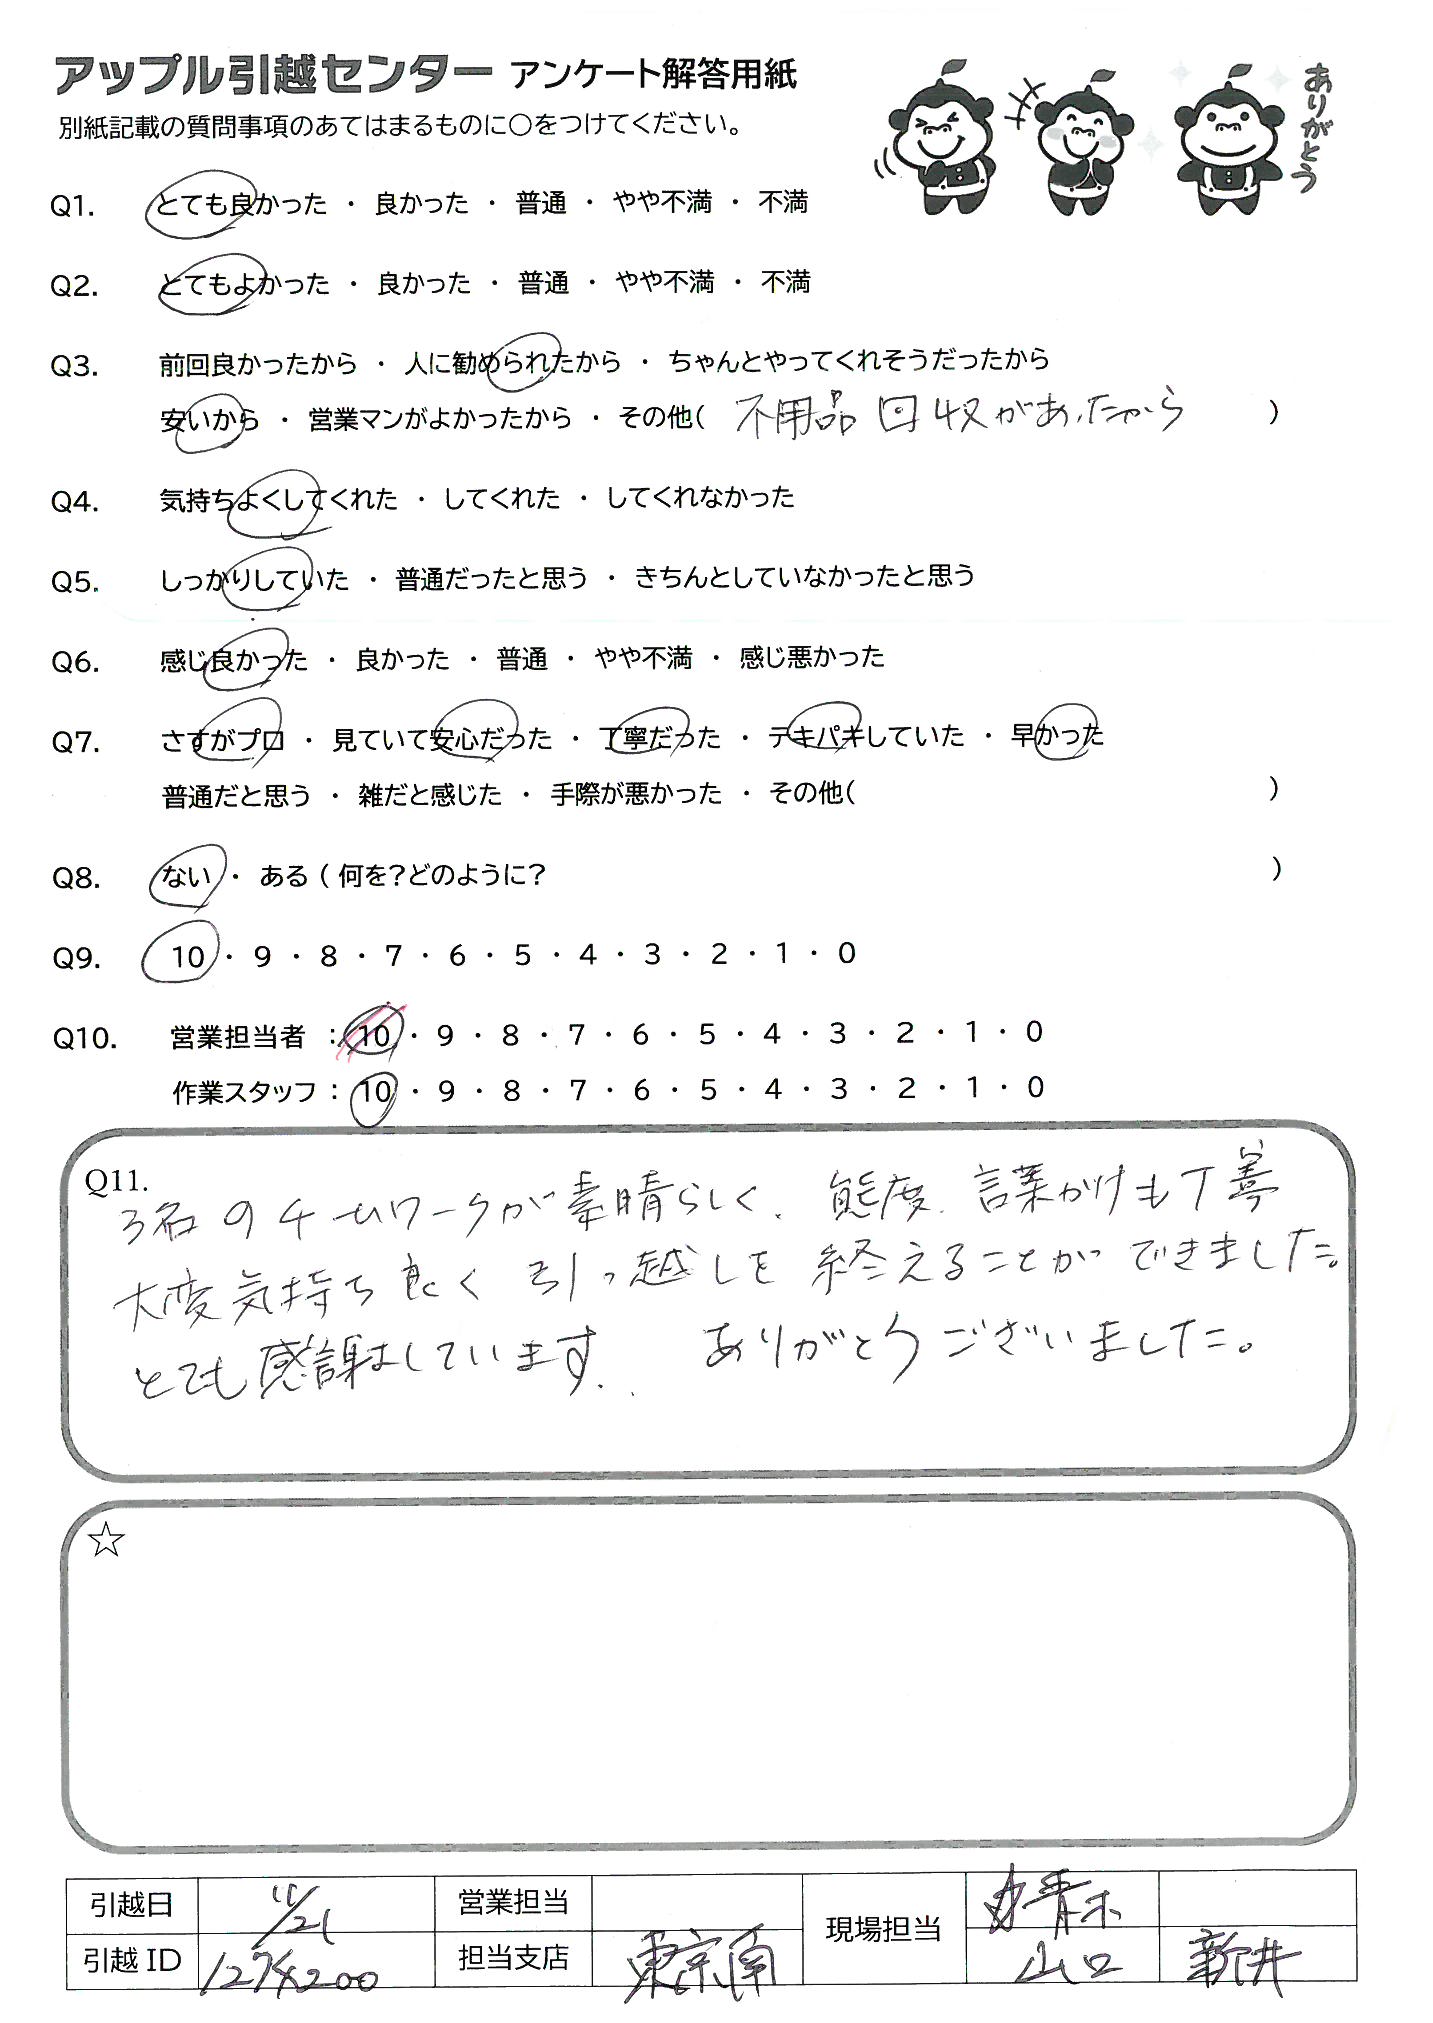 アップル引越センター アンケート解答用紙
別紙記載の質問事項のあてはまるものに〇をつけてください。
ありがとう
Q1. とても良かった ・ 良かった ・ 普通 ・ やや不満 ・ 不満
Q2. とてもよかった ・ 良かった ・ 普通 ・ やや不満 ・ 不満
Q3. 前回良かったから ・ 人に勧められたから ・ ちゃんとやってくれそうだったから
安いから ・ 営業マンがよかったから ・ その他( 不用品回収があったから )
Q4. 気持ちよくしてくれた ・ してくれた ・ してくれなかった
Q5. しっかりしていた ・ 普通だったと思う ・ きちんとしていなかったと思う
Q6. 感じ良かった ・ 良かった ・ 普通 ・ やや不満 ・ 感じ悪かった
Q7. さすがプロ ・ 見ていて安心だった ・ 丁寧だった ・ テキパキしていた ・ 早かった
普通だと思う ・ 雑だと感じた ・ 手際が悪かった ・ その他( )
Q8. ない ・ ある ( 何を?どのように? )
Q9. 10 ・ 9 ・ 8 ・ 7 ・ 6 ・ 5 ・ 4 ・ 3 ・ 2 ・ 1 ・ 0
Q10. 営業担当者 : 10 ・ 9 ・ 8 ・ 7 ・ 6 ・ 5 ・ 4 ・ 3 ・ 2 ・ 1 ・ 0
作業スタッフ : 10 ・ 9 ・ 8 ・ 7 ・ 6 ・ 5 ・ 4 ・ 3 ・ 2 ・ 1 ・ 0
Q11.
3名のチームワークが素晴らしく、態度、言葉がけも丁寧
大変気持ち良く引っ越しを終えることができました。
とても感謝しています. ありがとうございました。
☆
引越日 11/21 営業担当 現場担当 青木
引越 ID 1274200 担当支店 東京南 山口 新井